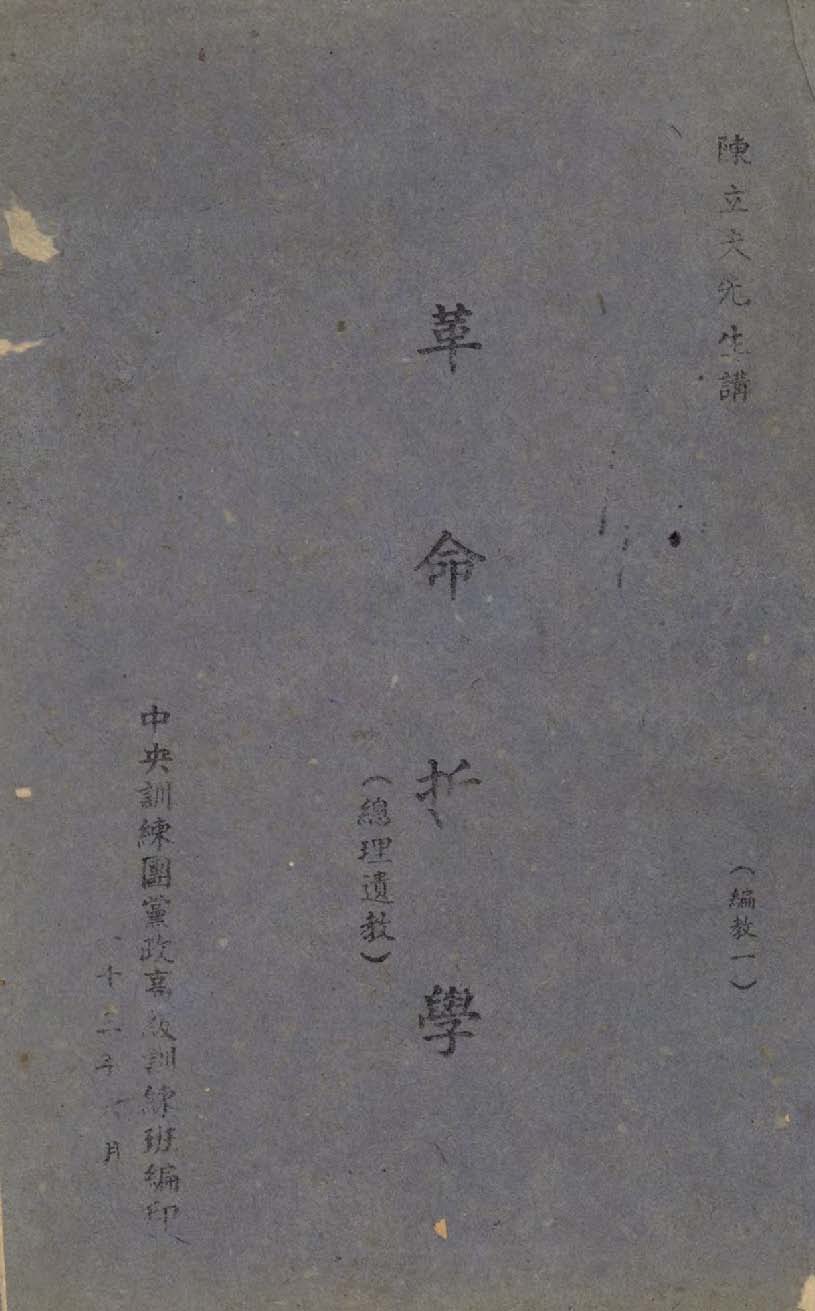 陳立夫先生講
（編教一）
革命哲學
（總理遺教）
中央訓練團黨政高級訓練班編印
十二年 月